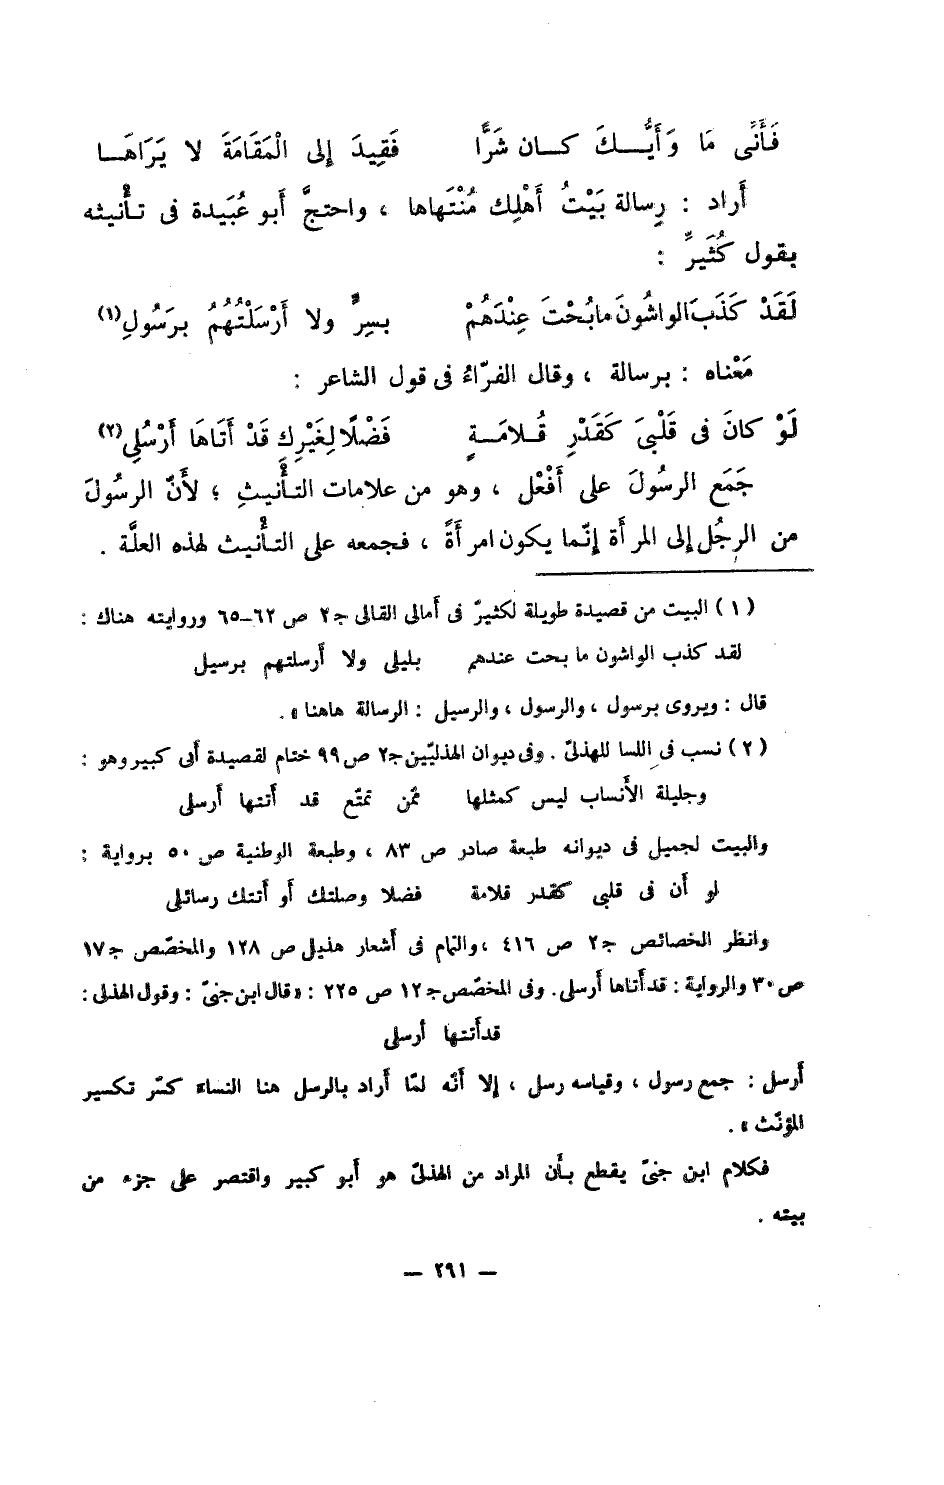 فَأَنِّى مَا وَأَيُّـــكَ كـــان شَرًّا    فَقِيدَ إلى الْمَقَامَةَ لا يَرَاهَـــا
أَراد : رِسالة بَيْتُ أَهْلِك مُنْتَهاها ، واحتجَّ أَبو عُبَيدة فى تـأْنيثه
بقول كُثَيرٍّ :
لَقَدْ كَذَبَ الواشُونَ مابُحْتَ عِنْدَهُمْ    بسِرٍّ ولا أَرْسَلْتُهُمُ برَسُولِ(١)
مَعْناه : برسالة ، وقال الفرّاءُ فى قول الشاعر :
لَوْ كانَ فى قَلْبىَ كَقَدْرِ قُـلامَـــةٍ    فَضْلًا لِغَيْرِكِ قَدْ أَتَاهَا أَرْسُلِى(٢)
جَمَع الرسُولَ على أَفْعْل ، وهو من علامات التـأْنيثِ ؛ لأَنّ الرسُولَ
من الرجُل إلى المرأَة إنّما يكون امرأَةً ، فجمعه على التـأْنيث لهذه العلَّة .
(١) البيت من قصيدة طويلة لكثيرّ فى أمالى القالى ج٢ ص ٦٢–٦٥ وروايته هناك :
لقد كذب الواشون ما بحت عندهم    بليلى ولا أرسلتهم برسيل
قال : ويروى برسول ، والرسول ، والرسيل : الرسالة هاهنا » .
(٢) نسب فى اللسا للهذلىّ . وفى ديوان الهذليّين ج٢ ص ٩٩ ختام لقصيدة أبى كبير وهو :
وجليلة الأنساب ليس كمثلها    ممّن تمتّع قد أتتها أرسلى
والبيت لجميل فى ديوانه طبعة صادر ص ٨٣ ، وطبعة الوطنية ص ٥٠ برواية :
لو أن فى قلبى كقدر قلامة    فضلا وصلتك أو أتتك رسائلى
وانظر الخصائص ج٢ ص ٤١٦ ، والتمام فى أشعار هذيل ص ١٢٨ والمخصّص ج١٧
ص ٣٠ والرواية : قد أتاها أرسلى. وفى المخصّص ج١٢ ص ٢٢٥ : «قال ابن جنىّ : وقول الهذلى :
قد أتتها أرسلى
أرسل : جمع رسول ، وقياسه رسل ، إلا أنّه لمّا أراد بالرسل هنا النساء كسّر تكسير
المؤنّث » .
فكلام ابن جنىّ يقطع بأن المراد من الهذلىّ هو أبو كبير واقتصر على جزء من
بيته .
— ٢٩١ —